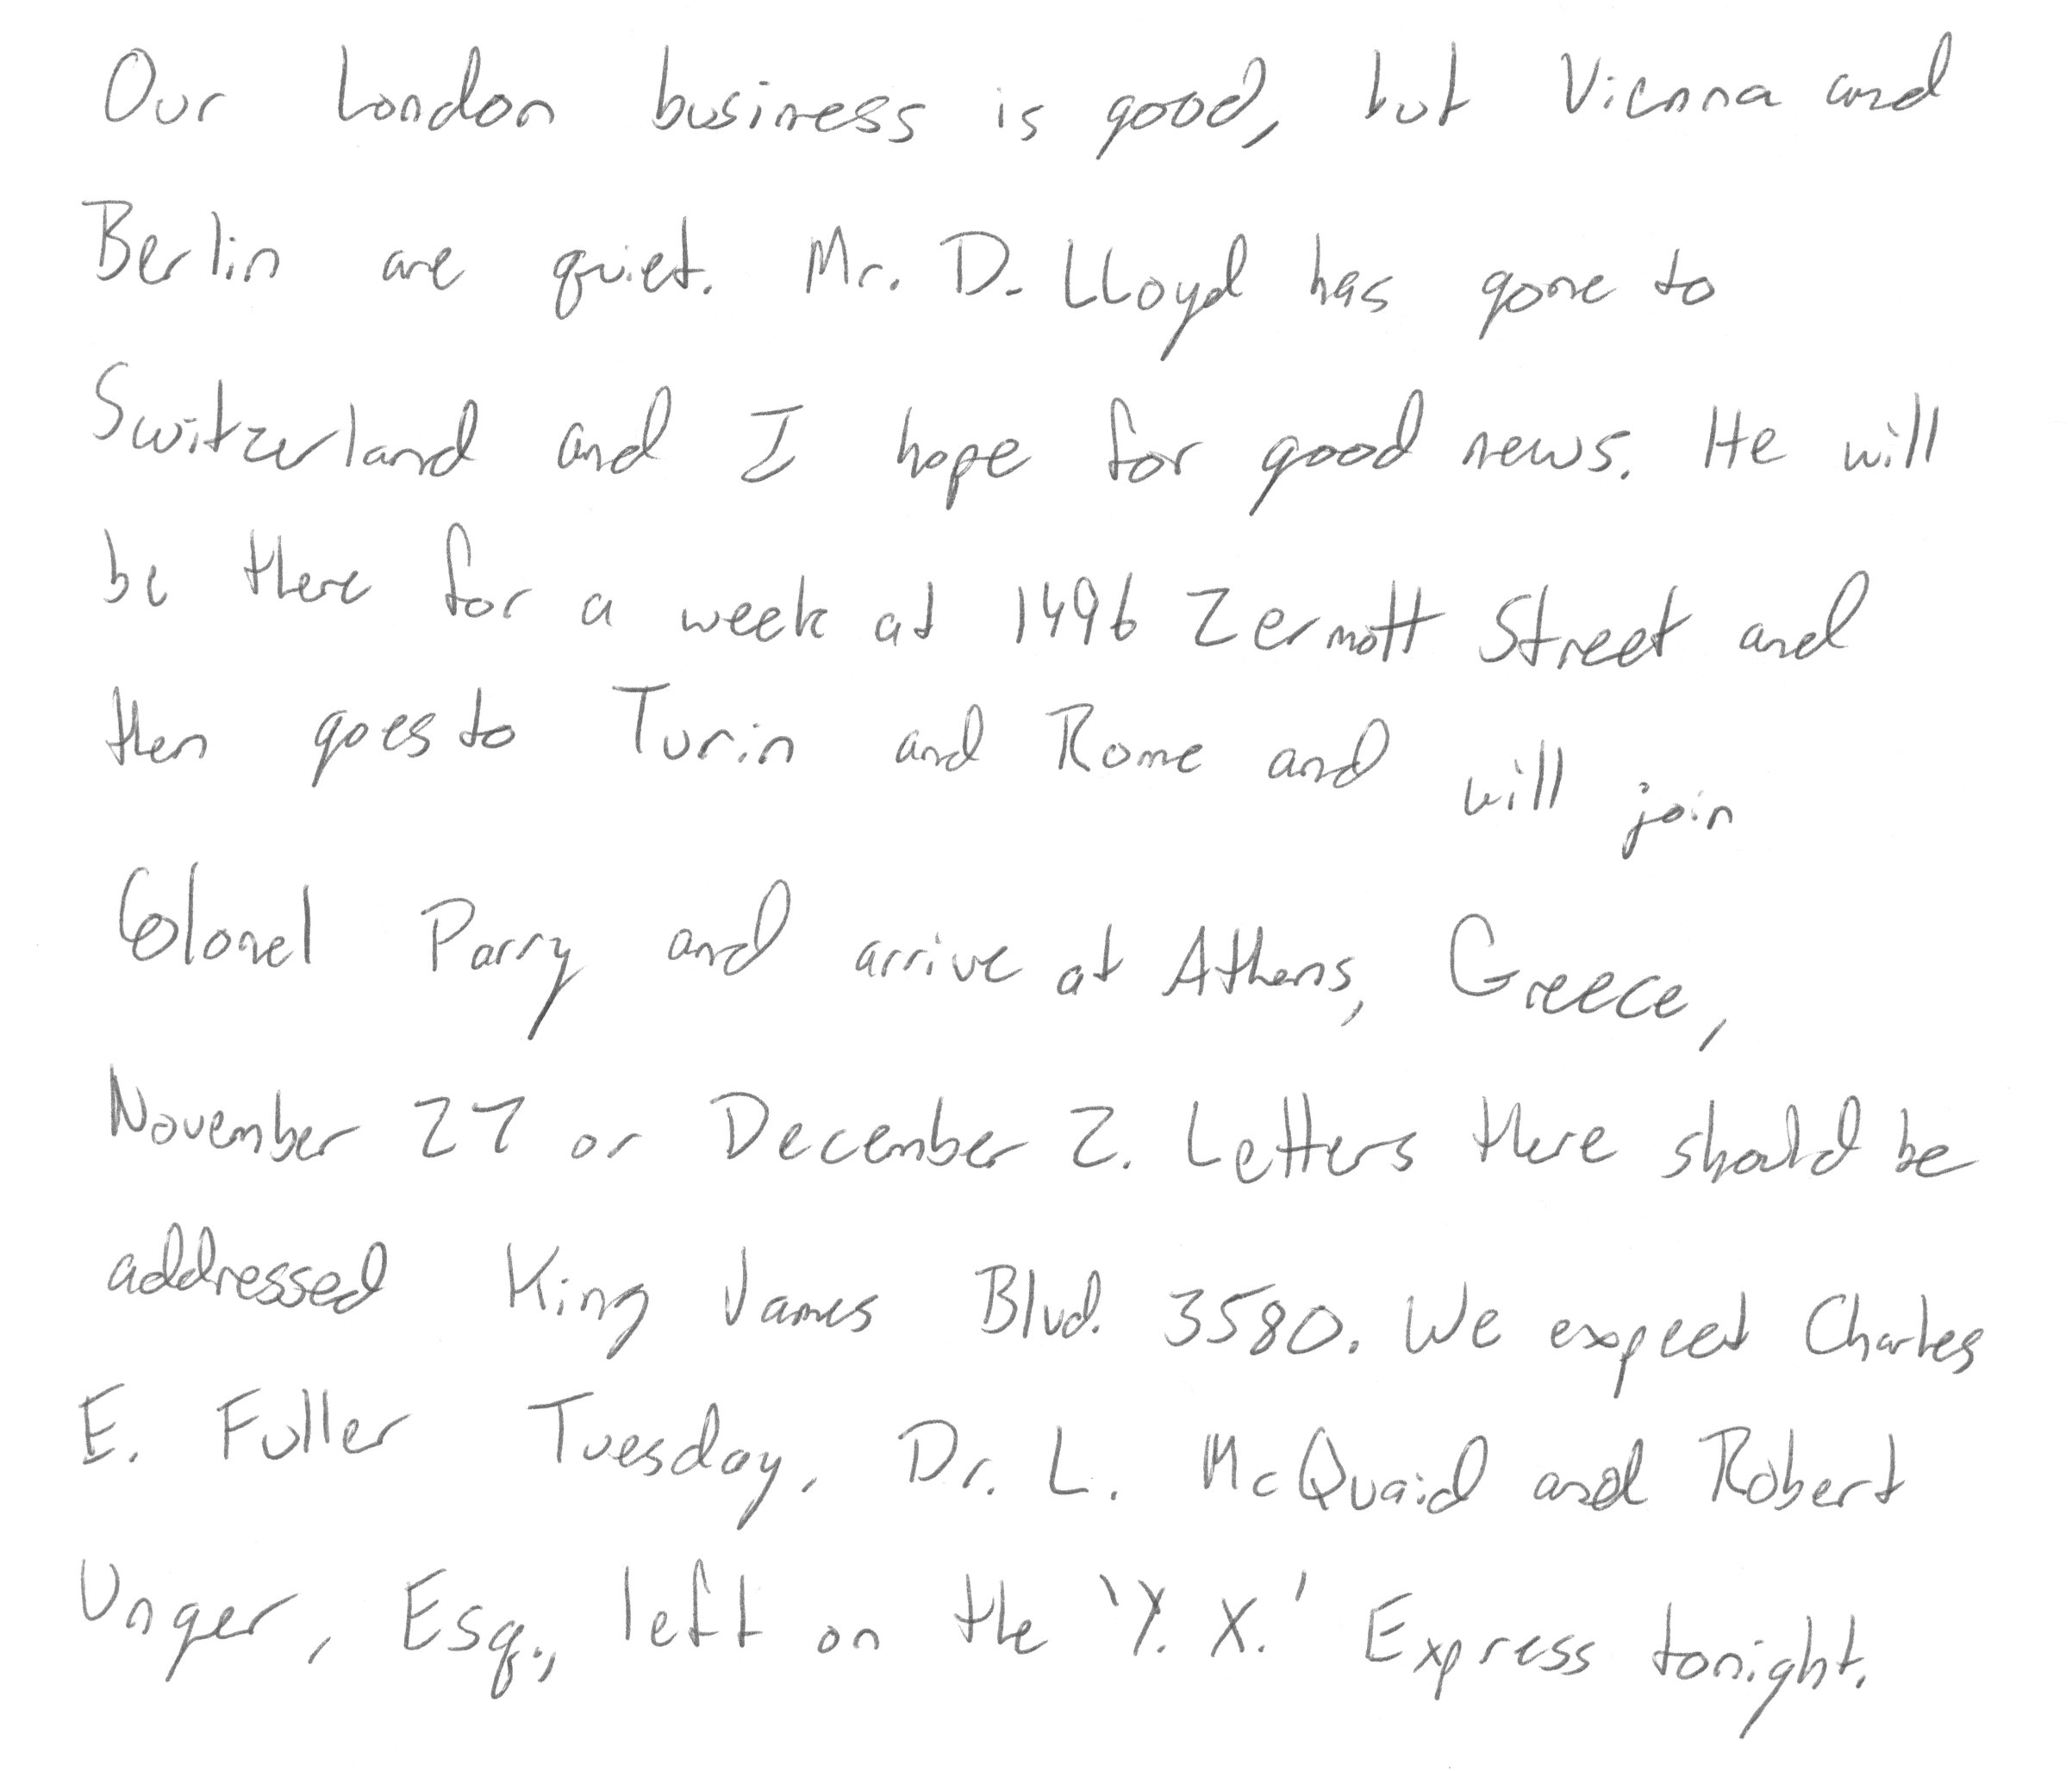 Our London business is good, but Vienna and
Berlin are quiet. Mr. D. Lloyd has gone to
Switzerland and I hope for good news. He will
be there for a week at 1496 Zermott Street and
then goes to Turin and Rome and will join
Colonel Parry and arrive at Athens, Greece,
November 27 or December 2. Letters there should be
addressed King James Blvd. 3580. We expect Charles
E. Fuller Tuesday. Dr. L. McQuaid and Robert
Unger, Esq., left on the 'Y. X.' Express tonight.